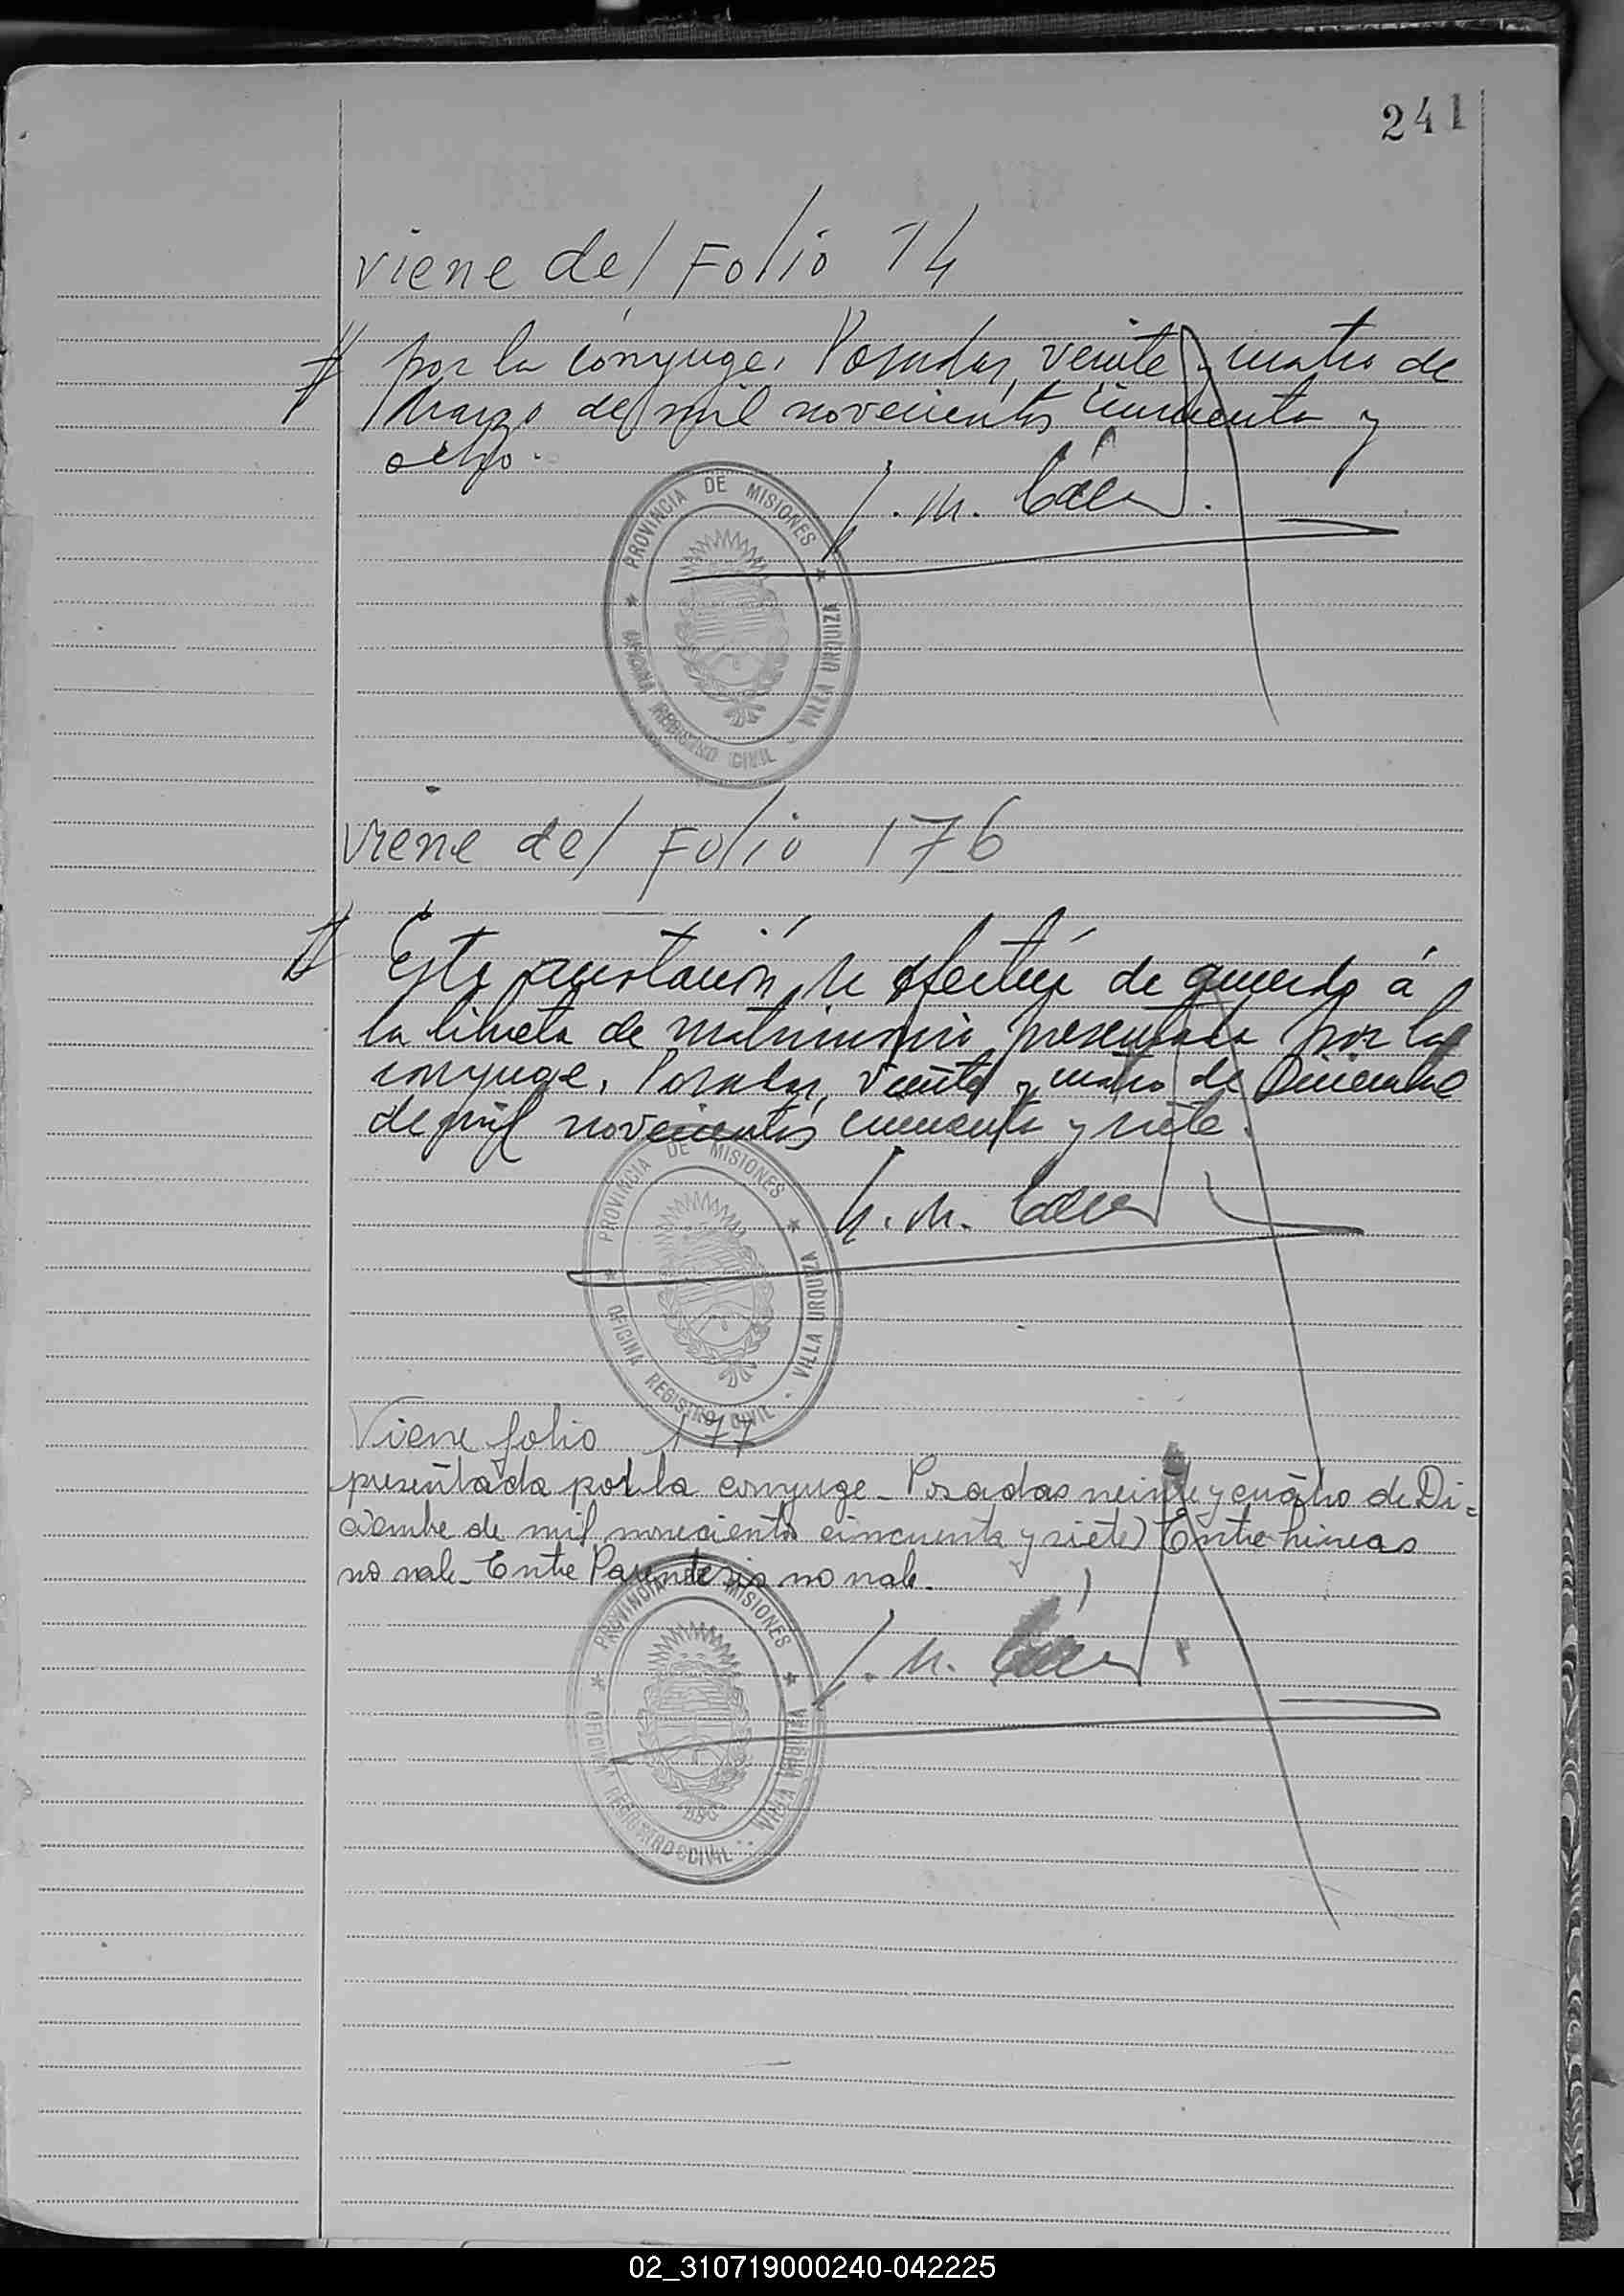 241
Viene del Folio 14
por la cónyuge. Posadas, veinte y cuatro de
Marzo de mil novecientos cincuenta y
ocho.
PROVINCIA DE MISIONES
OFICINA REGISTRO CIVIL - VILLA URQUIZA
Viene del Folio 176
Esta anotación se efectúa de acuerdo á
la libreta de matrimonio presentada por la
conyuge. Posadas, veinte y cuatro de Diciembre
de mil novecientos cincuenta y siete.
PROVINCIA DE MISIONES
OFICINA REGISTRO CIVIL - VILLA URQUIZA
Viene folio 177
presentada por la conyuge - Posadas veinte y cuatro de Di=
ciembre de mil novecientos cincuenta y siete) Entre lineas
no vale - Entre Parentesis no vale.
PROVINCIA DE MISIONES
OFICINA REGISTRO CIVIL - VILLA URQUIZA
02_310719000240-042225